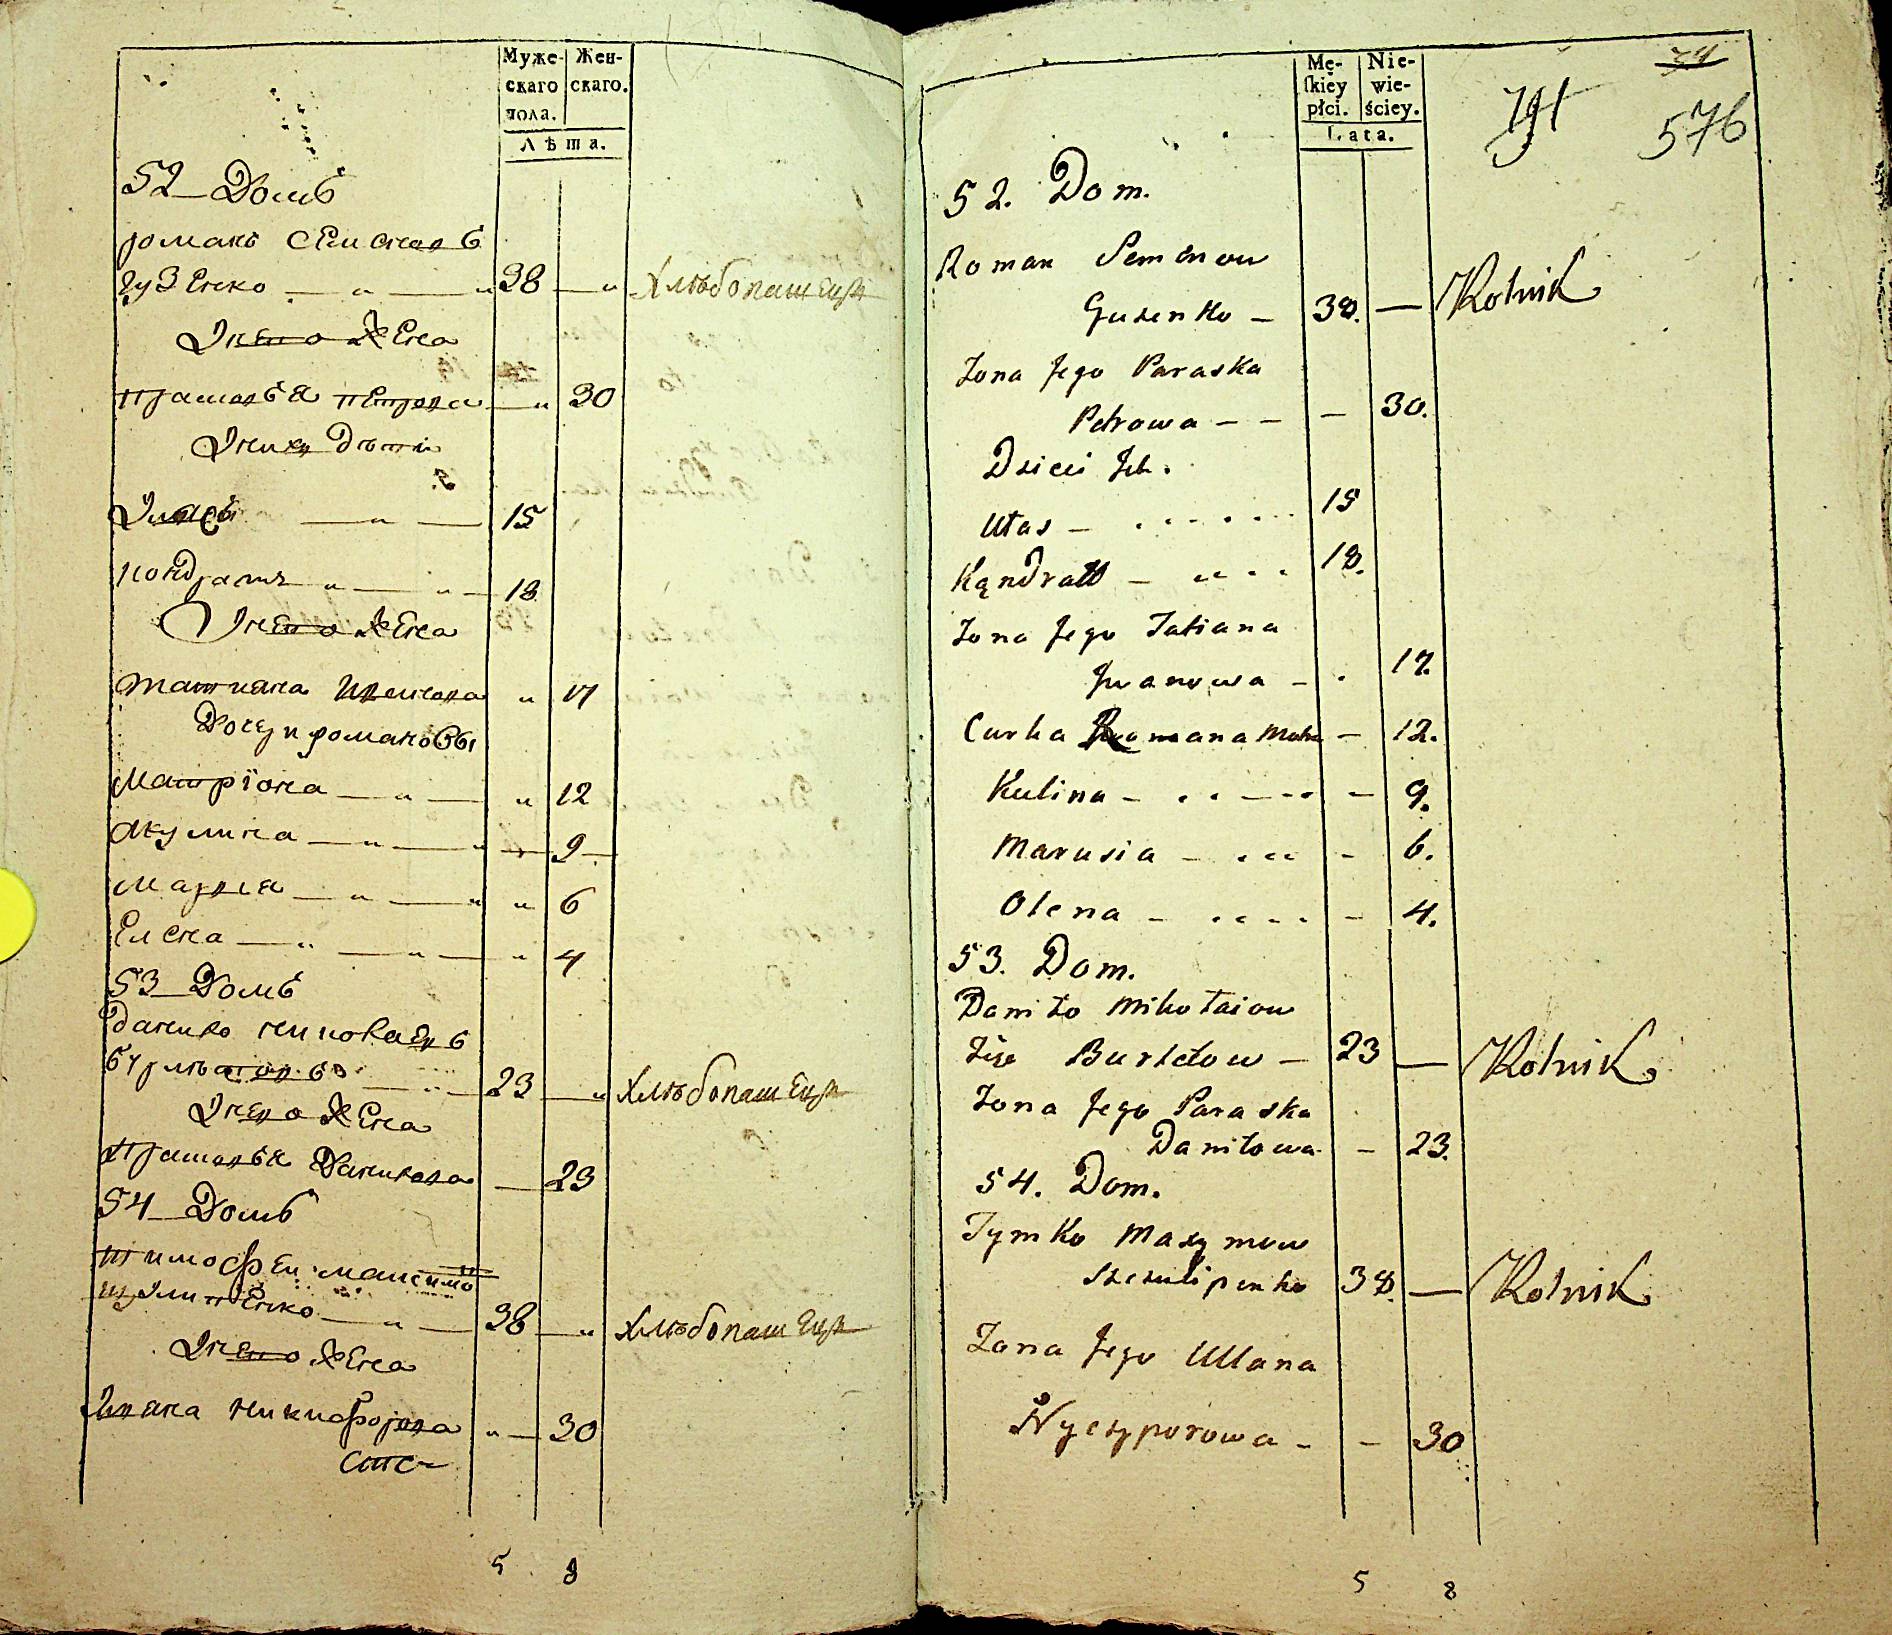 Муже-
скаго
пола.
Жен-
скаго.
Лѣта.
52 Домъ
романъ Семеновъ
гузенко — „ — „ 38 — „ Хлѣбопашецъ
У него жена
Прасковья петрова — „ 30
У них дѣти
Уласъ — „ — 15
кондратъ „ — „ — 18
У него жена
татиана Иванова „ 17
Дочери романовы
Матріона — „ — „ 12
Акулина — „ — „ 9
Марья — „ — „ „ 6
Елена — „ — „ — „ 4
53 Домъ
данило николаевъ
— „ — 23 — „ Хлѣбопашецъ
У него жена
Прасковья Данилова — 23
54 Домъ
тимофей максимо
шулипенко — „ — 38 — „ Хлѣбопашецъ
У него жена
Уляна никифорова „ — 30
5 8
Mę-
ſkiéy
płci.
Nie-
wie-
ściey.
Lata.
34
576
52. Dom.
Roman Semenow
Guzenko — 38. — Rolnik
Zona Jego Paraska
Petrowa — — — 30.
Dzieci Ich.
Ułas — 15
Kąndratt — 18.
Zona Jego Tatiana
Iwanowa — 17.
Curka Romana Motra — 12.
Kulina — — 9.
Marusia — — 6.
Olena — — 4.
53. Dom.
Daniło Mikołaiow
Burłatow — 23 — Rolnik
Zona Jego Paraska
Daniłowa — 23.
54. Dom.
Tymko Maxymow
Szezulipenko 38. — Rolnik
Zona Jego Ullana
Nyczyporowa — — 30
5 8